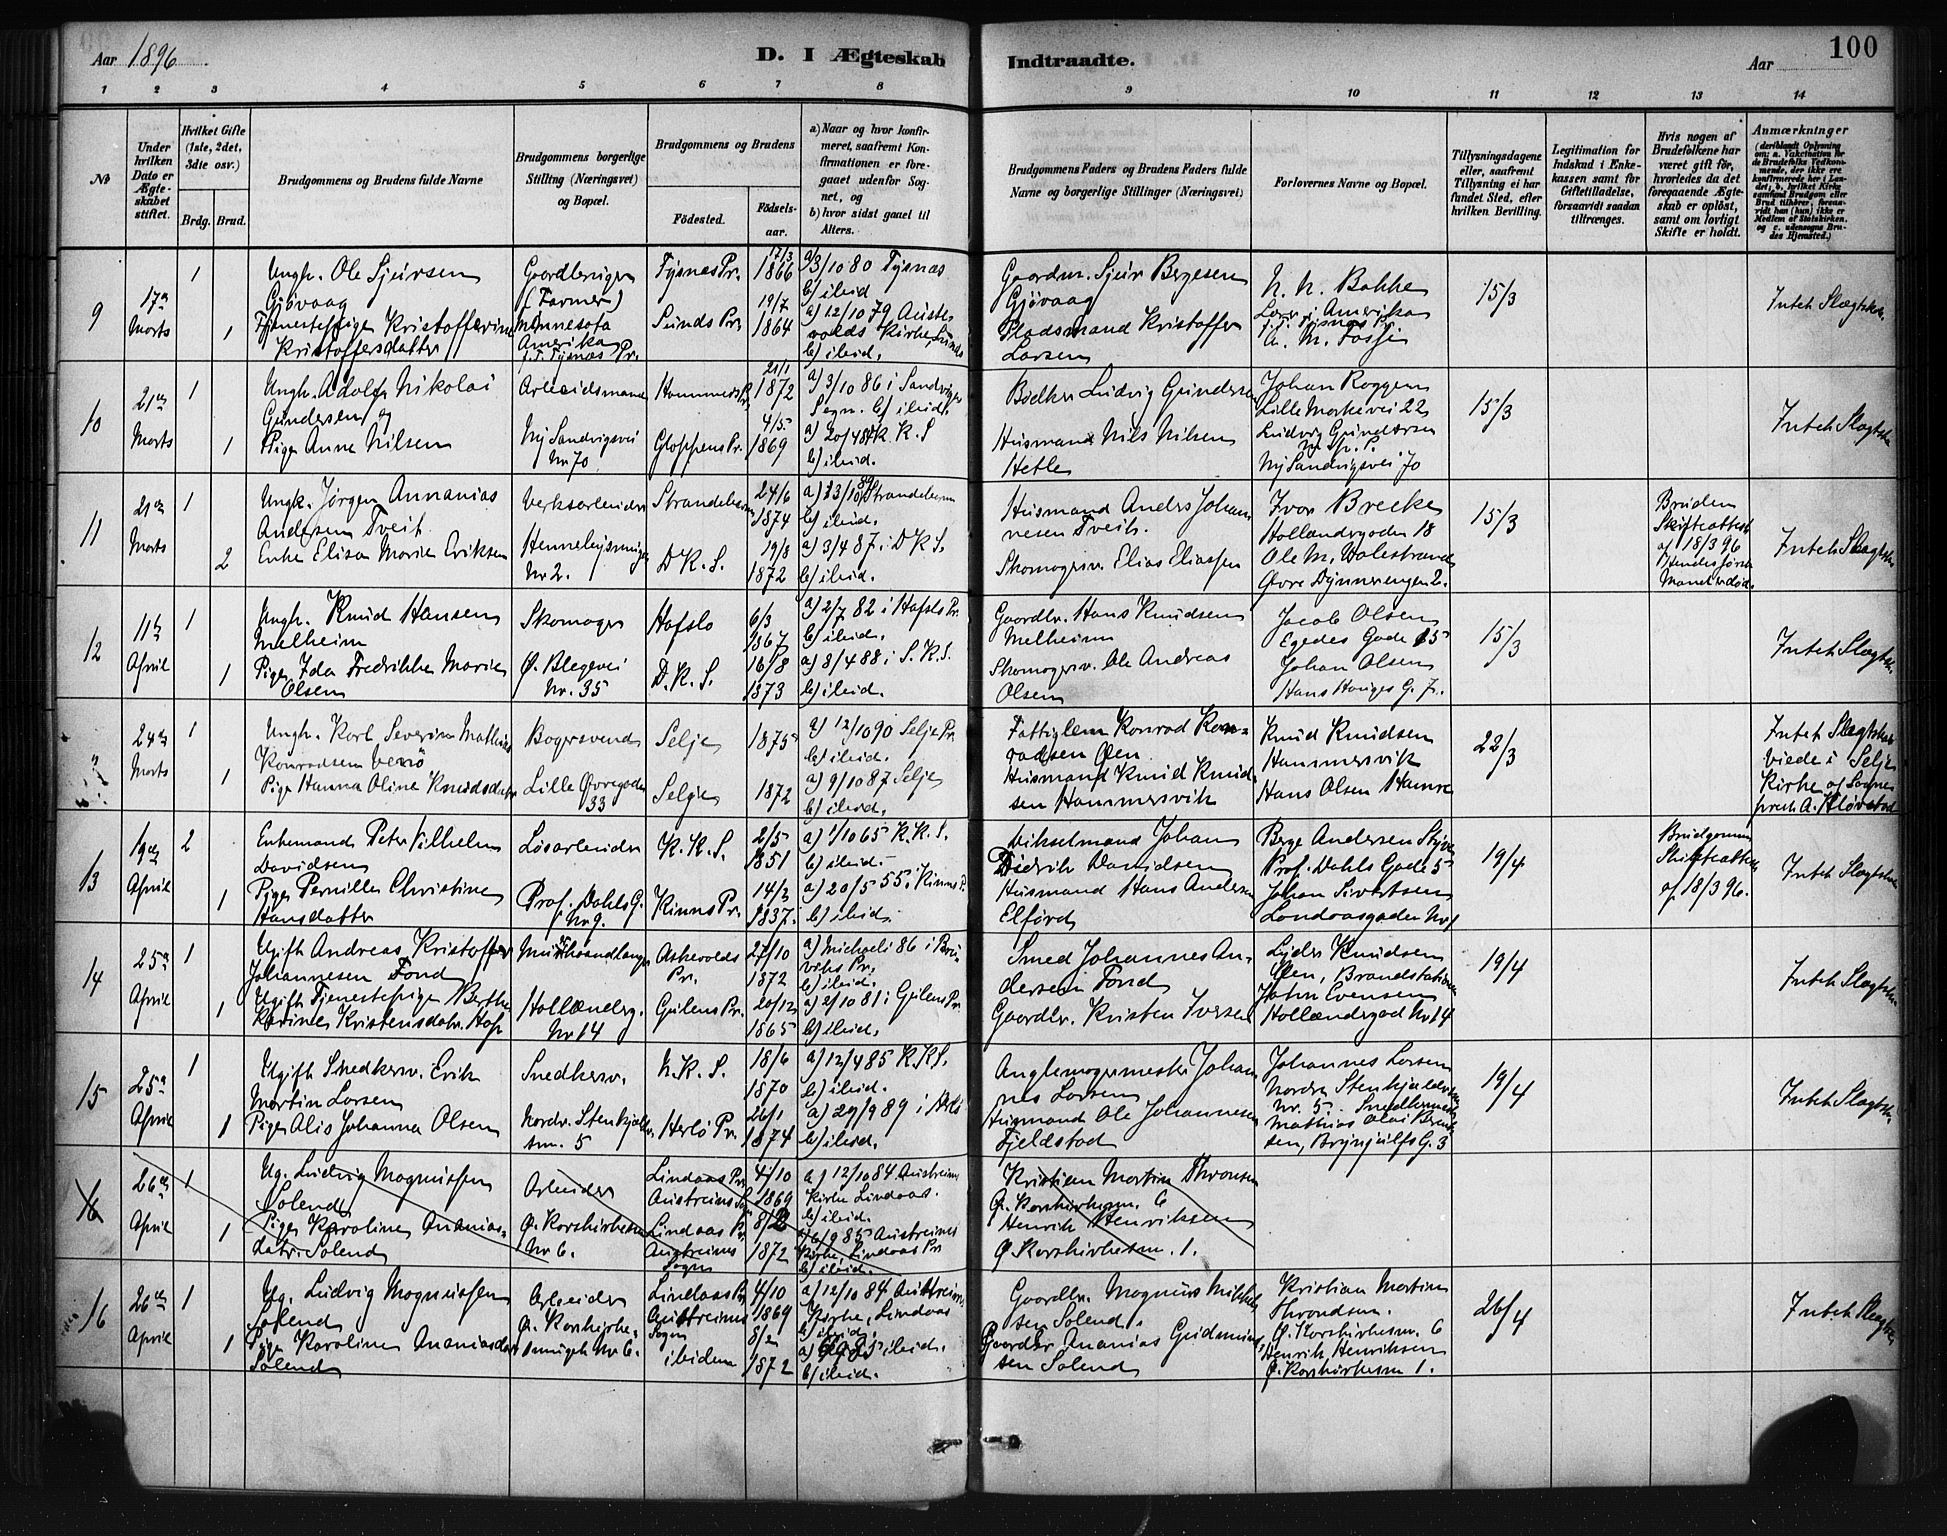 Aar 1896
D. I Ægteskab Indtraadte.
Aar
100
1 2 3 4 5 6 7 8 9 10 11 12 13 14
No
Under hvilken Dato er Ægteskabet stiftet.
Hvilket Gifte (1ste, 2det, 3die osv.)
Brdg. Brud.
Brudgommens og Brudens fulde Navne
Brudgommens borgerlige Stilling (Næringsvei) og Bopæl.
Brudgommens og Brudens
Fødested.
Fødsels-aar.
a) Naar og hvor konfirmeret, saafremt Konfirmationen er foregaaet udenfor Sognet, og
b) hvor sidst gaaet til Alters.
Brudgommens Faders og Brudens Faders fulde Navne og borgerlige Stillinger (Næringsvei)
Forlovernes Navne og Bopæl.
Tillysningsdagene eller, saafremt Tillysning ei har fundet Sted, efter hvilken Bevilling.
Legitimation for Indskud i Enkekassen samt for Giftetilladelse, forsaavidt saadan tiltrænges.
Hvis nogen af Brudefolkene har været gift før, hvorledes da det foregaaende Ægteskab er opløst, samt om lovligt Skifte er holdt.
Anmærkninger
9
17de Marts
1
1
Ungk. Ole Sjursen
Gjøvaag
Tjenestepige Kristofferine
Kristoffersdatter
Gaardbruger
(Farmer)
Minnesota
Amerika
f. T. Tysnæs Pr.
Tysnæs Pr.
Sunds Pr.
17/3 1866
19/7 1864
a) 3/10 80 Tysnæs
b) ibid
a) 12/10 79 Auste
volds Kirke, Sunds
b) ibid.
Gaardm. Sjur Bergesen
Gjøvaag
Pladsmand Kristoffer
Larsen
N. N. Bakke
A. M. Fosse
15/3
Intet Slægtsk.
10
21de Marts
1
1
Ungk. Adolf Nikolai
Gundersen og
Pige Anne Nilsen
Arbeidsmand
Ny Sandvigsvei
Nr 70
Hammers Pr.
Gloppens Pr.
21/1 1872
4/5 1869
a) 3/10 86 i Sandvigens
Sogn. b) ibid.
b) ibid.
Bødker Ludvig Gundersen
Husmand Nils Nilsen
Hetle
Johan Roggen
Lille Markevei 22
Ludvig Gundersen
Ny Sandvigsvei 70
15/3
Intet Slægtsk.
11
21de Marts
1
2
Ungk. Jørgen Annanias
Andersen Tveit.
Enke Elisa Marie Eriksen
Verksarbeider
Nr 2.
Strandebarm
D. K. S.
24/6 1874
19/8 1872
a) 13/10 89 Strandebarm
b) ibid.
a) 3/4 87 i D K S.
b) ibid.
Husmand Anders Johan
nesen Tveit.
Skomagersv. Elias Eliassen
Ivar Brekke
Hollændergaden 18
Ole M. Valestrand
15/3
Brudens
Skifteattest
af 18/3 96
Intet Slægtsk.
12
11te April
1
1
Ungk. Knud Hansen
Melheim
Pige Ida Fredrikke Marie
Olsen
Skomager
Ø. Blegevei
Nr. 35
Hafslo
D. K. S.
6/3 1867
16/8 1873
a) 2/7 82 i Hafslo Pr.
b) ibid.
a) 8/4 88 i S. K. S.
b) ibid.
Gaardbr. Hans Knudsen
Melheim
Skomagersv. Ole Andreas
Olsen
Jacob Olsen
Egedes Gade 15
Johan Olsen
Hans Hauges G. 7.
15/3
Intet Slægtsk.
24de Marts
1
1
Ungk. Karl Severin Mathias
Konradsen
Pige Hanna Oline Knudsdatr
Bagersvend
Lille Øvregaden
33
Selje
Selje
1875
1872
a) 12/10 90 Selje Pr.
b) ibid.
a) 9/10 87 Selje
b) ibid.
Fattiglem Konrad Kon-
radsen Øen
Husmand Knud Knud
sen Hammersvik
Knud Knudsen
Hammersvik
Hans Olsen Hamre
22/3
Intet Slægtskab
viede i Selje
Kirke af Sogne
prest A. Kløvstad
13
19de April
2
1
Enkemand Peter Vilhelm
Davidsen
Pige Pernille Christine
Hansdatter
Løsarbeider
Prof. Dahls G.
Nr 9.
K. K. S.
Kinns Pr.
2/5 1851
14/3 1837.
a) 1/10 65 K. K. S.
b) ibid.
a) 20/5 55 i Kinns Pr.
b) ibid.
Vikselmand Johan
Didrik Davidsen
Husmand Hans Andersen
Elford
Berge Andersen
Prof. Dahls Gade 5
Johan Sivertsen
Landaasgaden Nr 1
19/4
Brudgommens
Skifteattest
af 18/3 96.
Intet Slægtsk.
14
25de April
1
1
Ugift Andreas Kristoffer
Johannesen Fond
Ugift Tjenestepige Berthe
Karine Kristensdatr. Hop
Murerhaandlanger
Hollænderg.
Nr 14
Askevolds
Pr.
Gulens Pr.
27/10 1872
20/12 1865
a) Michaeli 86 i Bru
viks Pr.
b) ibid.
a) 2/10 81 i Gulens Pr.
b) ibid.
Smed Johannes An-
dersen Fond
Gaardbr. Kristen Iversen
Lyder Knudsen
Øen, Brandstationen
John Evensen
Hollændergad Nr 14
19/4
Intet Slægtsk.
15
25de April
1
1
Ugift Snedkersv. Erik
Martin Larsen
Pige Alis Johanna Olsen
Snedkersv.
Nordre Stenkjelder
sm. 5
N. K. S.
Herlø Pr.
18/6 1870
26/1 1874
a) 12/4 85 K. K. S.
b) ibid.
a) 29/9 89 i Herlø
b) ibid.
Johan
nes Larsen
Husmand Ole Johannesen
Fjeldstad
Johannes Larsen
Nordre Stenkjelder
Nr. 5. Snedkermester
Mathias Olai Bernt
sen, Brynjulfs G. 3
19/4
Intet Slægtsk.
16
26de April
1
1
Ug. Ludvig Magnussen
Solend
Pige Karoline Ananias-
datr. Solend
Arbeider
Ø. Korskirkesm
Nr 6.
Lindaas Pr.
Austreims S.
Lindaas Pr.
Austreims
Sogn
4/10 1869
8/2 1872
a) 12/10 84 Austreim
Kirke Lindaas.
b) ibid.
a) 6/9 85 Austreims
Kirke, Lindaas Pr
b) ibid.
Kristian Martin Thronsen
Ø. Korskirkesm. 6
Henrik Henriksen
Ø Korskirkesm. 1.
16
26de April
1
1
Ug. Ludvig Magnussen
Solend
Pige Karoline Ananiasdatr
Solend
Arbeider
Ø. Korskirke-
smuget Nr 6.
Lindaas Pr.
Austreims
Sogn
ibidem
4/10 1869
8/2 1872
a) 12/10 84 Austreims
Kirke, Lindaas
b) ibid.
a) 6/9 85 ibid.
b) ibid.
Gaardbr. Magnus Mikkel
sen Solend.
Gaardbr Ananias Gudmund
sen Solend
Kristian Martin
Throndsen.
Ø. Korskirkesm. 6
Henrik Henriksen
Ø. Korskirkesm 1.
26/4
Intet Slægtsk.